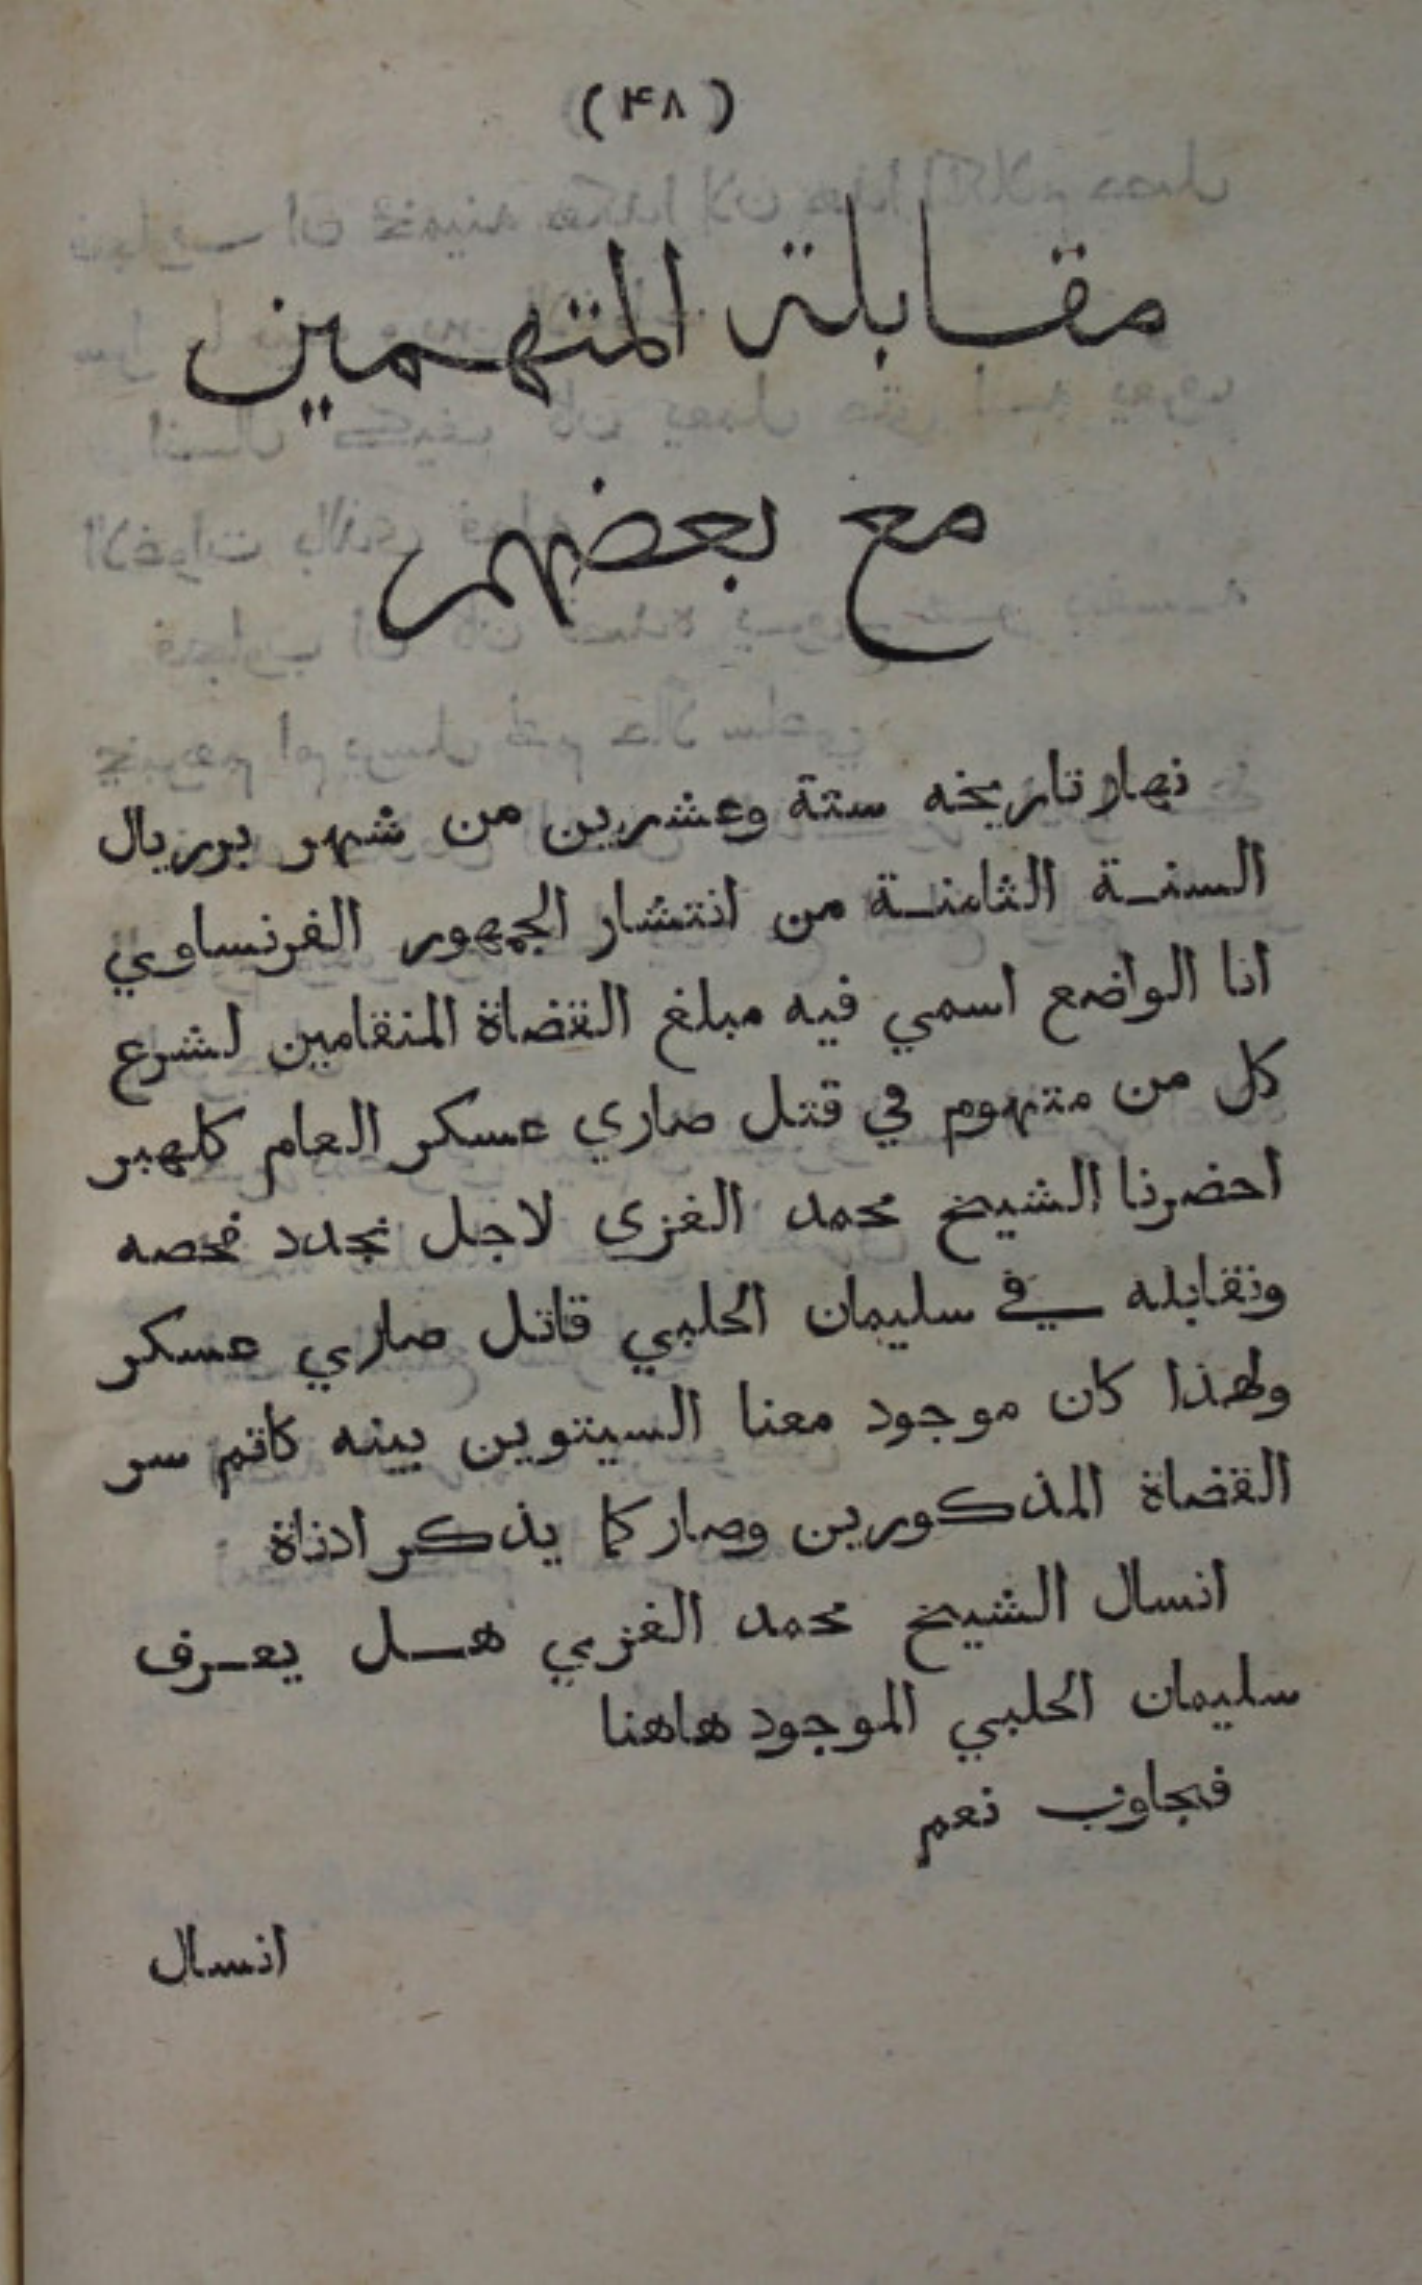 (٤٨)
مقابلة المتهمين
مع بعضهم
نهار تاريخه ستة وعشرين من شهر برريال
السنة الثامنة من انتشار الجمهور الفرنساوي
انا الواضع اسمي فيه مبلغ القضاة المنقامين لشرع
كل من متهوم في قتل صاري عسكر العام كلهبر
احضرنا الشيخ محمد الغزي لاجل نجدد فحصه
ونقابله في سليمان الحلبي قاتل صاري عسكر
ولهذا كان موجود معنا السيتوين بينه كاتم سر
القضاة المذكورين وصار كما يذكر ادناة
انسال الشيخ محمد الغزي هل يعرف
سليمان الحلبي الموجود هاهنا
فجاوب نعم
انسال